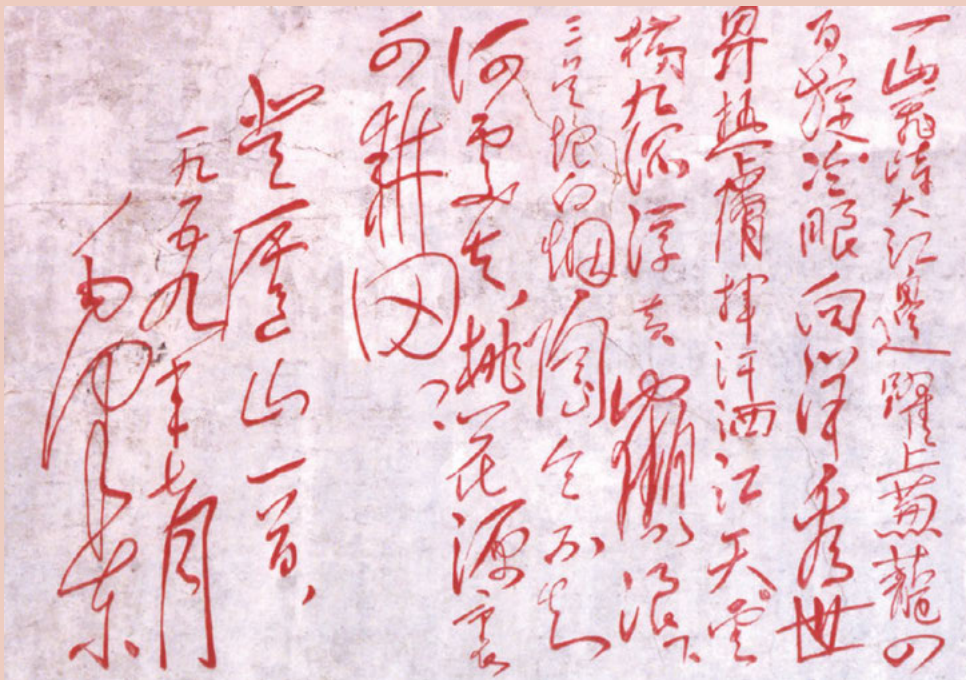 一山飛峙大江邊躍上蔥蘢四
百旋冷眼向洋看世
界热膚揮汗洒江天雲
橫九派浮黄鶴浪下
三吴起白烟陶令不知
何處去、桃花源裏
可耕田
登廬山一首、
一九五九年七月
毛泽东